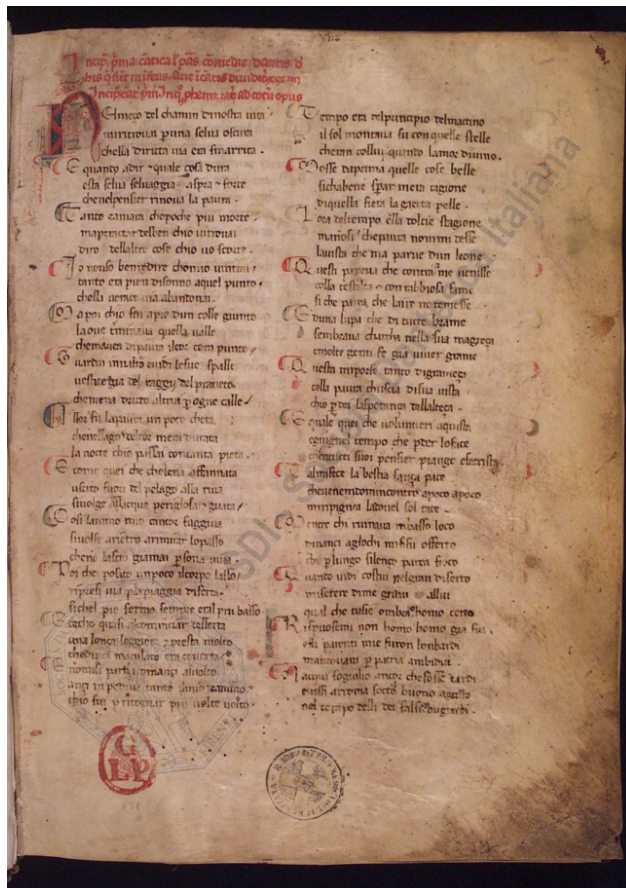 Nel meço del chamin di nostra vita
mi ritrovai p una selva oscura
chella diritta via era smarrita.
E quanto adir qual era cosa dura
esta selva selvaggia aspra e forte
che nel pensier rinova la paura.
Tanto camara che poche piu morte
ma p tractar del ben chio vi trovai
diro dellaltre cose chio vo scorte.
Io non so ben ridire chomio
tanto era pien di sonno aquel punto
chella verace via abandonai.
Ma poi chio fui apie dun colle giunto
la ove terminava quella valle
che mavea di paura il cor compunto
Guardai in alto e vidi le sue spalle
vestite gia de raggi del pianeta
che mena dritto altrui p ogne calle
Allor fu la paura un poco cheta
che nellago del cor mera durata
la notte chio passai contanta pieta.
E come quei che cholena affannata
uscito fuori del pelago alla riva
si volge allacqua perigliosa e guata
Cosi lanimo mio cancor fuggiva
si volse arietro arimirar lo passo
che non lascio giamai persona viva
Poi che posato un poco il corpo lasso
ripresi via p la piaggia diserta
si chel pie fermo sempre era l piu basso
Et echo quasi al cominciar dellerta
una lonça leggiera e presta molto
che di pel maculato era coverta
non mi si partia dinançi al volto
ançi impediva tanto il mio camino
chio fui p ritornar piu volte volto.
Tempo era del principio del matino
il sol montava su con quelle stelle
cheran collui quando lamor divino.
Mosse da prima quelle cose belle
si chabene sperar mera cagione
di quella fiera la gaieta pelle
Lora del tempo e la dolcie stagione
ma non si che paura non mi desse
la vista che ma parve dun leone
Questi parea che contra me venisse
colla testalta e con rabbiosa fame
si che parea che laire ne temesse.
Et duna lupa che di tucte brame
sembrava charcha nella sua magreça
e molte genti fe gia viver grame
Questa mi porse tanto di graveça
colla paura chuscia di sua vista
chio p dei la sperança dellalteça.
E quale quei che voluntieri aquista
e giugnel tempo che p der lo face
che ntucti suoi pensier piange e satrista
Tal mi fece la bestia sança pace
che venendomi incontro apoco apoco
mi ripignea la dovel sol tace.
Mentre chi ruinava in basso loco
dinançi agliochi mi si fu offerto
che p lungo silenço parea fioco
Quando vidi costui nel gran diserto
miserere di me gridai allui
qual che tu sie ombra o homo certo
Rispuosemi non homo homo gia fui.
e li parenti mie furon lombardi
mantovani p patria ambidui.
Nacqui sob iulio ancor che fosse tardi
e vissi arroma socto l buono agusto
nel tempo delli dei falsi e bugiardi.